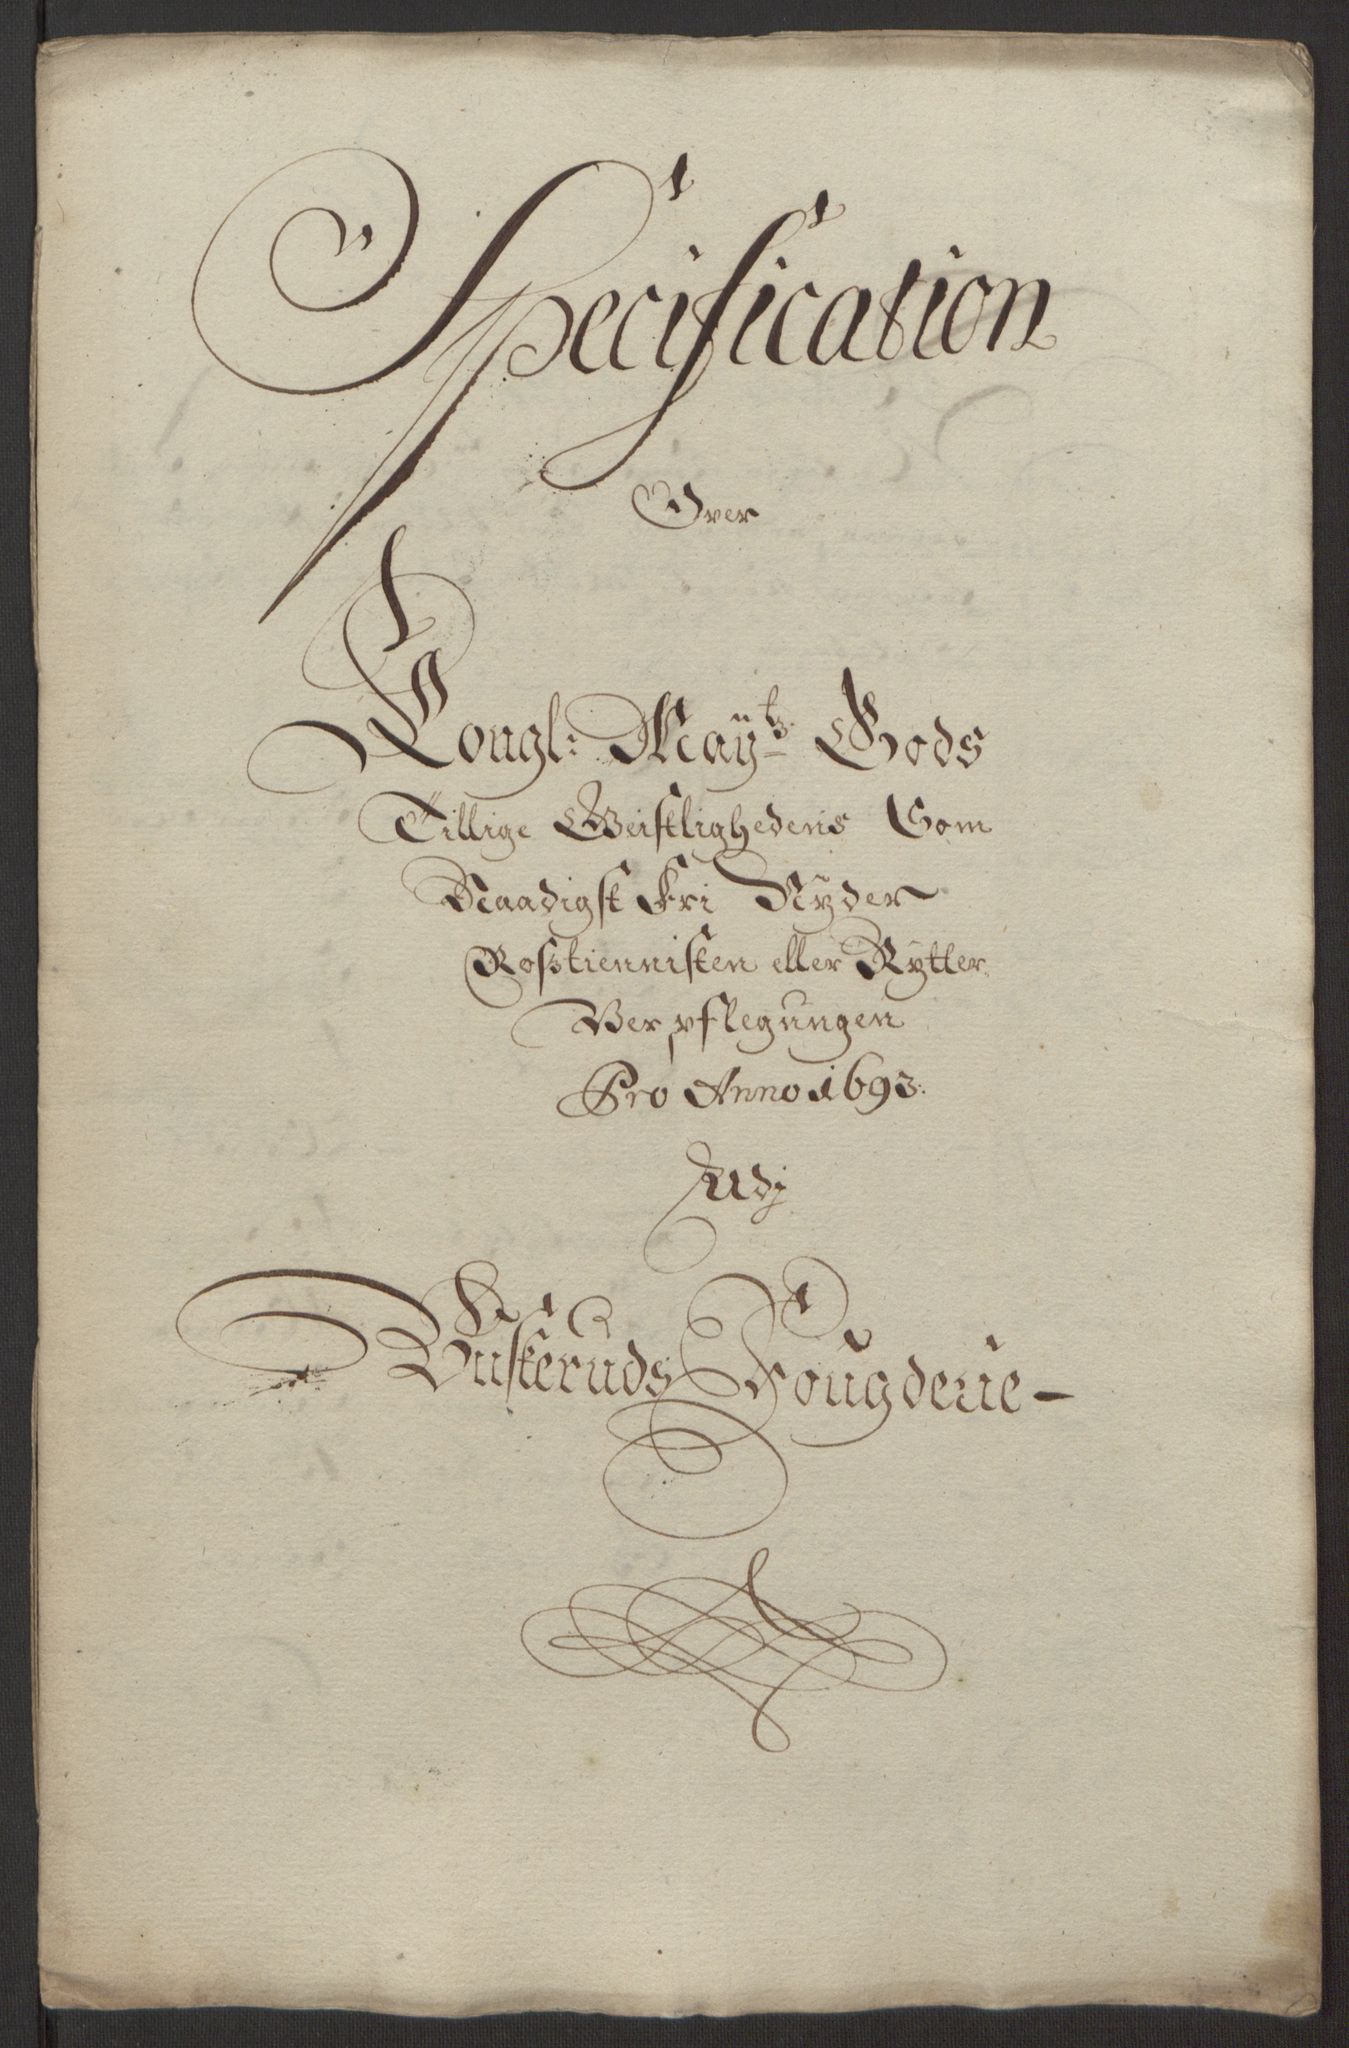 Specification
Over
Kongl: Mayᵗˢ Gods
Tillige Geistlighedens Som
Naadigst Fri Nyder
Rostiennisten eller Rytter
Verpflegungen
Pro Anno 1693:
Udj
Buskeruds Fougderie